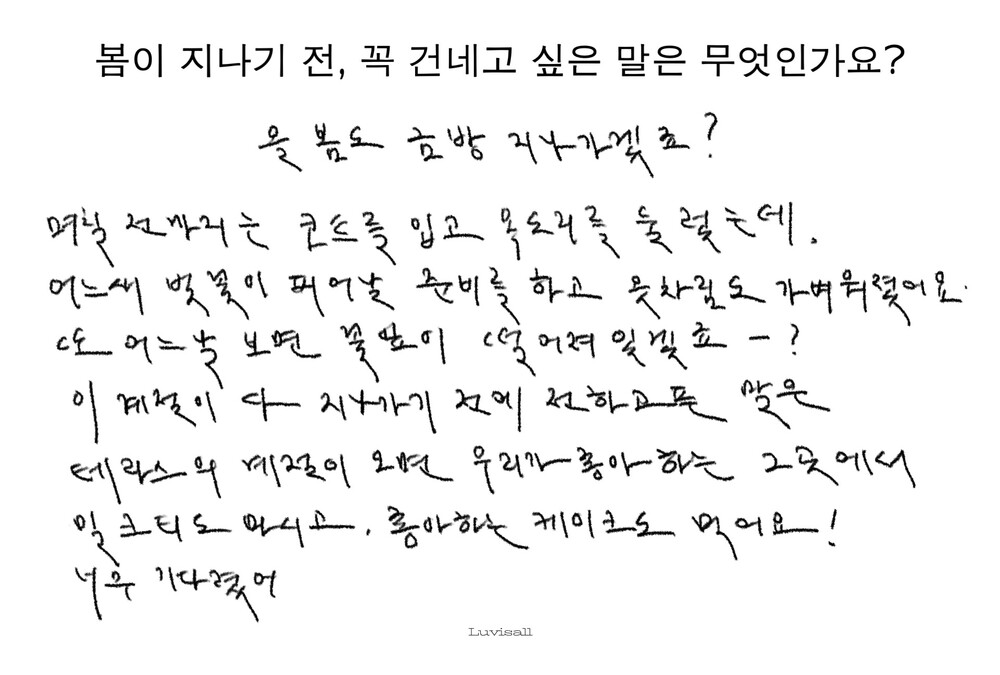 봄이 지나기 전, 꼭 건네고 싶은 말은 무엇인가요?
올 봄도 금방 지나가겠죠?
며칠 전까지는 코트를 입고 목도리를 둘렀는데,
어느새 벚꽃이 피어날 준비를 하고 옷차림도 가벼워졌어요.
또 어느날 보면 꽃잎이 떨어져있겠죠-?
이 계절이 다 지나가기 전에 전하고픈 말은
테라스의 계절이 오면 우리가 좋아하는 그곳에서
밀크티도 마시고, 좋아하는 케이크도 먹어요!
너무 기다렸어
Luvisall